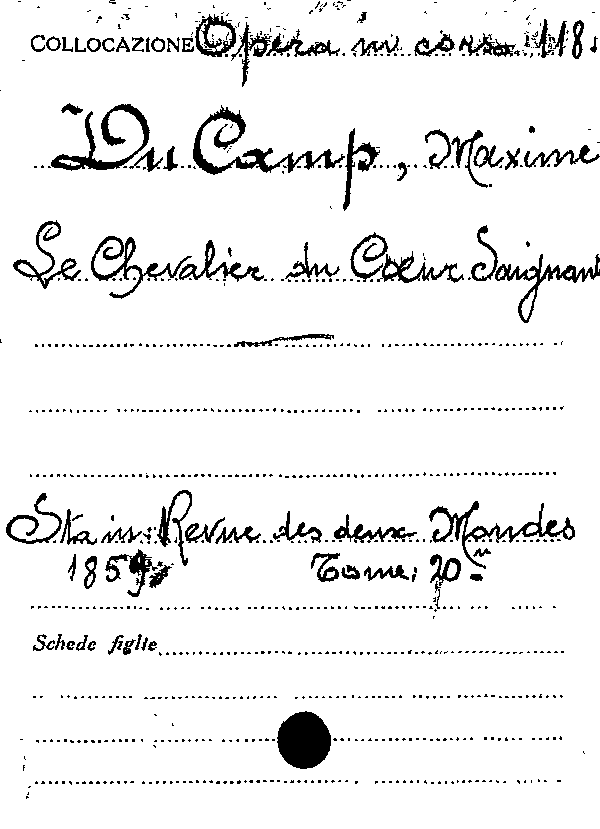 COLLOCAZIONE Opera in corso 118
Du Camp, Maxime
Le Chevalier du Cœur Saignant
Sta in: Revue des deux Mondes
1859 Tome: 20
Schede figlie